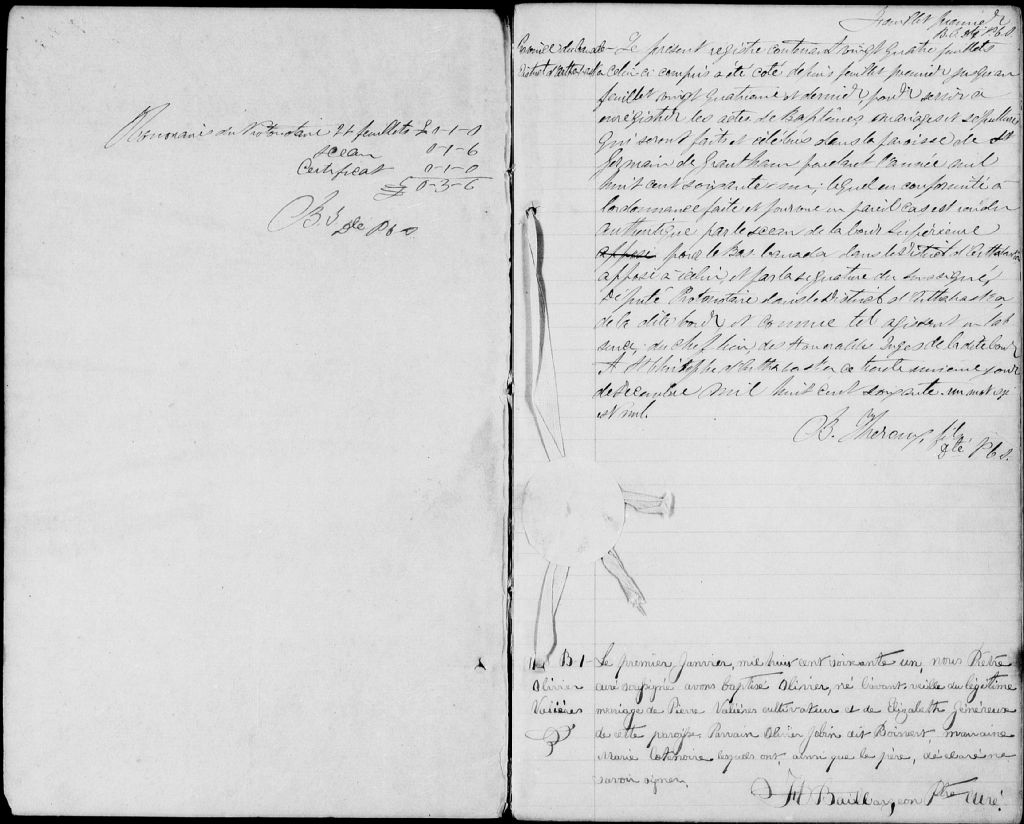 Honoraires du Protonotaire 24 feuillets £ 0-1-0
Sceau 0-1-6
Certificat 0-1-0
£ 0-3-6
B. T.
Dté P.C.S.
Feuillet premier
B.T. Dté P.C.S.
Province du Canada
District d'Arthabaska
Le présent registre contenant vingt quatre feuillets
celui ci compris a été coté depuis feuillet premier jusqu'au
feuillet vingt quatrième et dernier, pour servir à
enregistrer les actes de Baptêmes, mariages et sépultures
qui seront faits et célébrés dans la paroisse de St
Germain de Grantham pendant l'année mil
huit cent soixante un; lequel en conformité à
l'ordonnance faite et pourvue en pareil cas est rendu
authentique par le sceau de la Cour Supérieure
apposé pour le Bas Canada dans le District d'Arthabaska
apposé à celui, et par la signature du soussigné,
Député Protonotaire dans le District d'Arthabaska,
de la dite Cour et comme tel agissant en l'ab
sence, du chef lieu, des Honorables Juges de la dite Cour
A St Christophe d'Arthabaska ce trente unième jour
de Décembre mil huit cent soixante. un mot
est nul.
B. Theroux, fils
Dté P.C.S.
B 1
Olivier
Valières
Le premier Janvier, mil huit cent soixante un, nous Prêtre
curé soussigné avons baptisé Olivier, né l'avant-veille du légitime
mariage de Pierre Valières cultivateur et de Elizabeth Généreux
de cette paroisse. Parrain Olivier Jobin dit Boisvert, marraine
Marie lesquels ont, ainsi que le père, déclaré ne
savoir signer.
Baillargeon Ptre Curé.